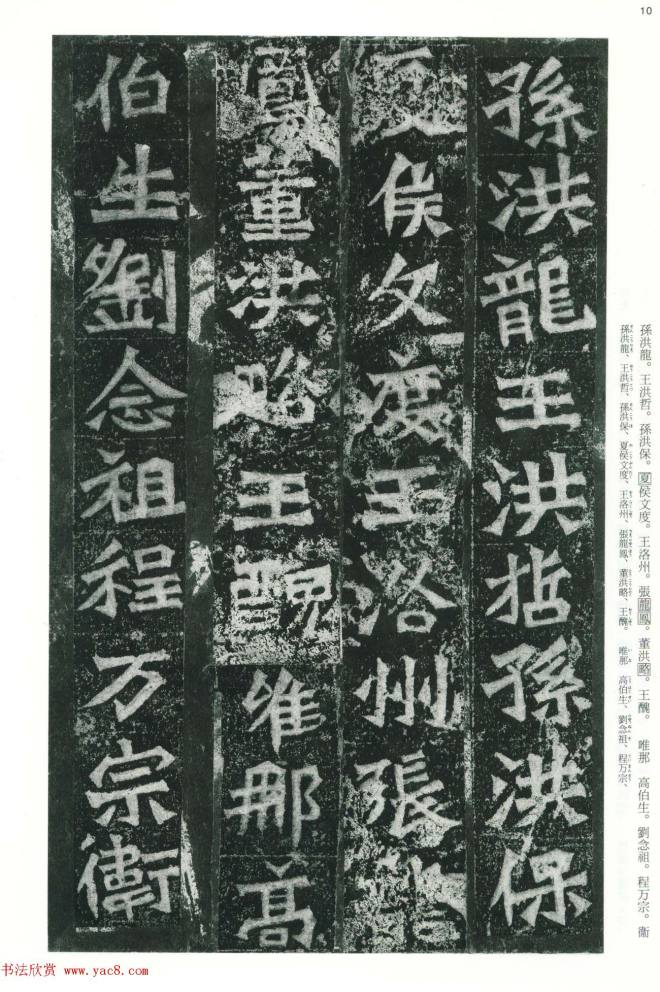 10
孫洪龍王洪哲孫洪保
夏侯文度王洛州張龍
鳳董洪略王醜維那高
伯生劉念祖程万宗衛
孫洪龍。王洪哲。孫洪保。夏侯文度。王洛州。張龍鳳。董洪略。王醜。 唯那 高伯生。劉念祖。程万宗。衞
孫洪龍、王洪哲、孫洪保、夏侯文度、王洛州、張龍鳳、董洪略、王醜。 唯那 高伯生、劉念祖、程万宗、
书法欣赏 www.yac8.com